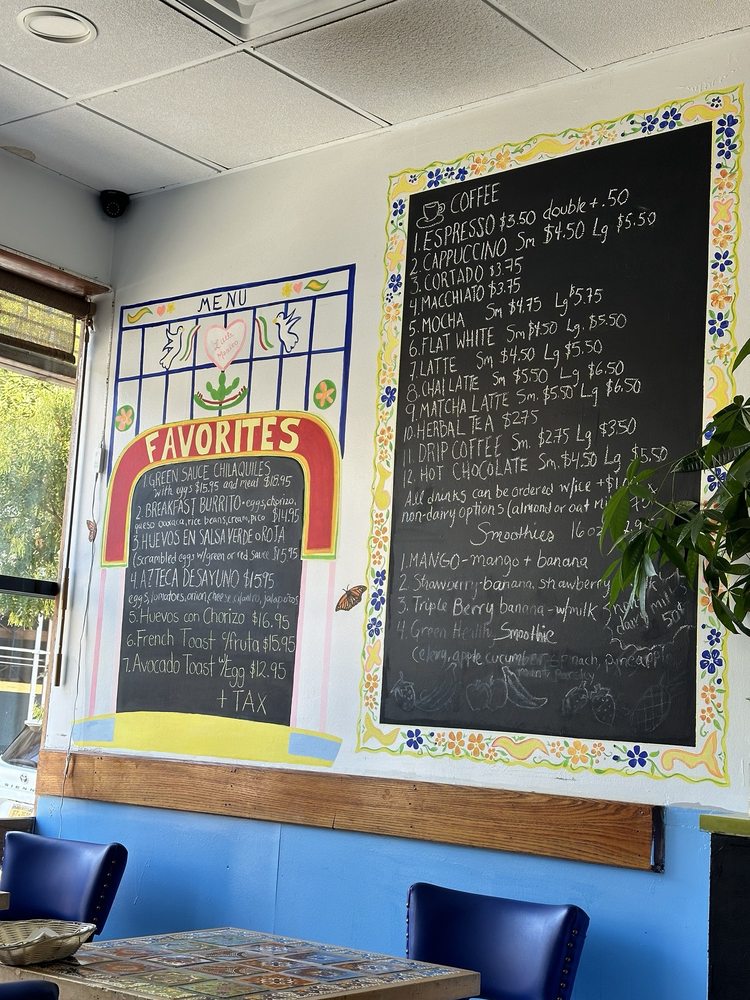 MENU
FAVORITES
1. GREEN SAUCE CHILAQUILES
with eggs $15.95 and meat $18.95
2. BREAKFAST BURRITO - eggs, chorizo,
queso oaxaca, rice, beans, cream, pico $14.95
3 HUEVOS EN SALSA VERDE o ROJA
(scrambled eggs w/green or red sauce $15.95
4. AZTECA DESAYUNO $15.95
eggs, tomatoes, onion, cheese, cilantro, jalapeños
5. Huevos con Chorizo $16.95
6. French Toast w/fruta $15.95
7. Avocado Toast w/Egg $12.95
+ TAX
COFFEE
1. ESPRESSO $3.50 double + .50
2. CAPPUCCINO Sm $4.50 Lg $5.50
3. CORTADO $3.75
4. MACCHIATO $3.75
5. MOCHA Sm $4.75 Lg $5.75
6. FLAT WHITE Sm $4.50 Lg. $5.50
7. LATTE Sm $4.50 Lg $5.50
8. CHAI LATTE Sm $5.50 Lg $6.50
9. MATCHA LATTE Sm. $5.50 Lg $6.50
10. HERBAL TEA $2.75
11. DRIP COFFEE Sm. $2.75 Lg $3.50
12. HOT CHOCOLATE Sm. $4.50 Lg $5.50
All drinks can be ordered w/ice +$1
non-dairy options (almond or oat milk
Smoothies 16oz
1. MANGO - mango + banana
2 Strawberry-banana, strawberry milk
3. Triple Berry banana - w/milk
4. Green Health Smoothie
Celery, apple, cucumber, spinach, pineapple
mint, parsley
milk
50¢